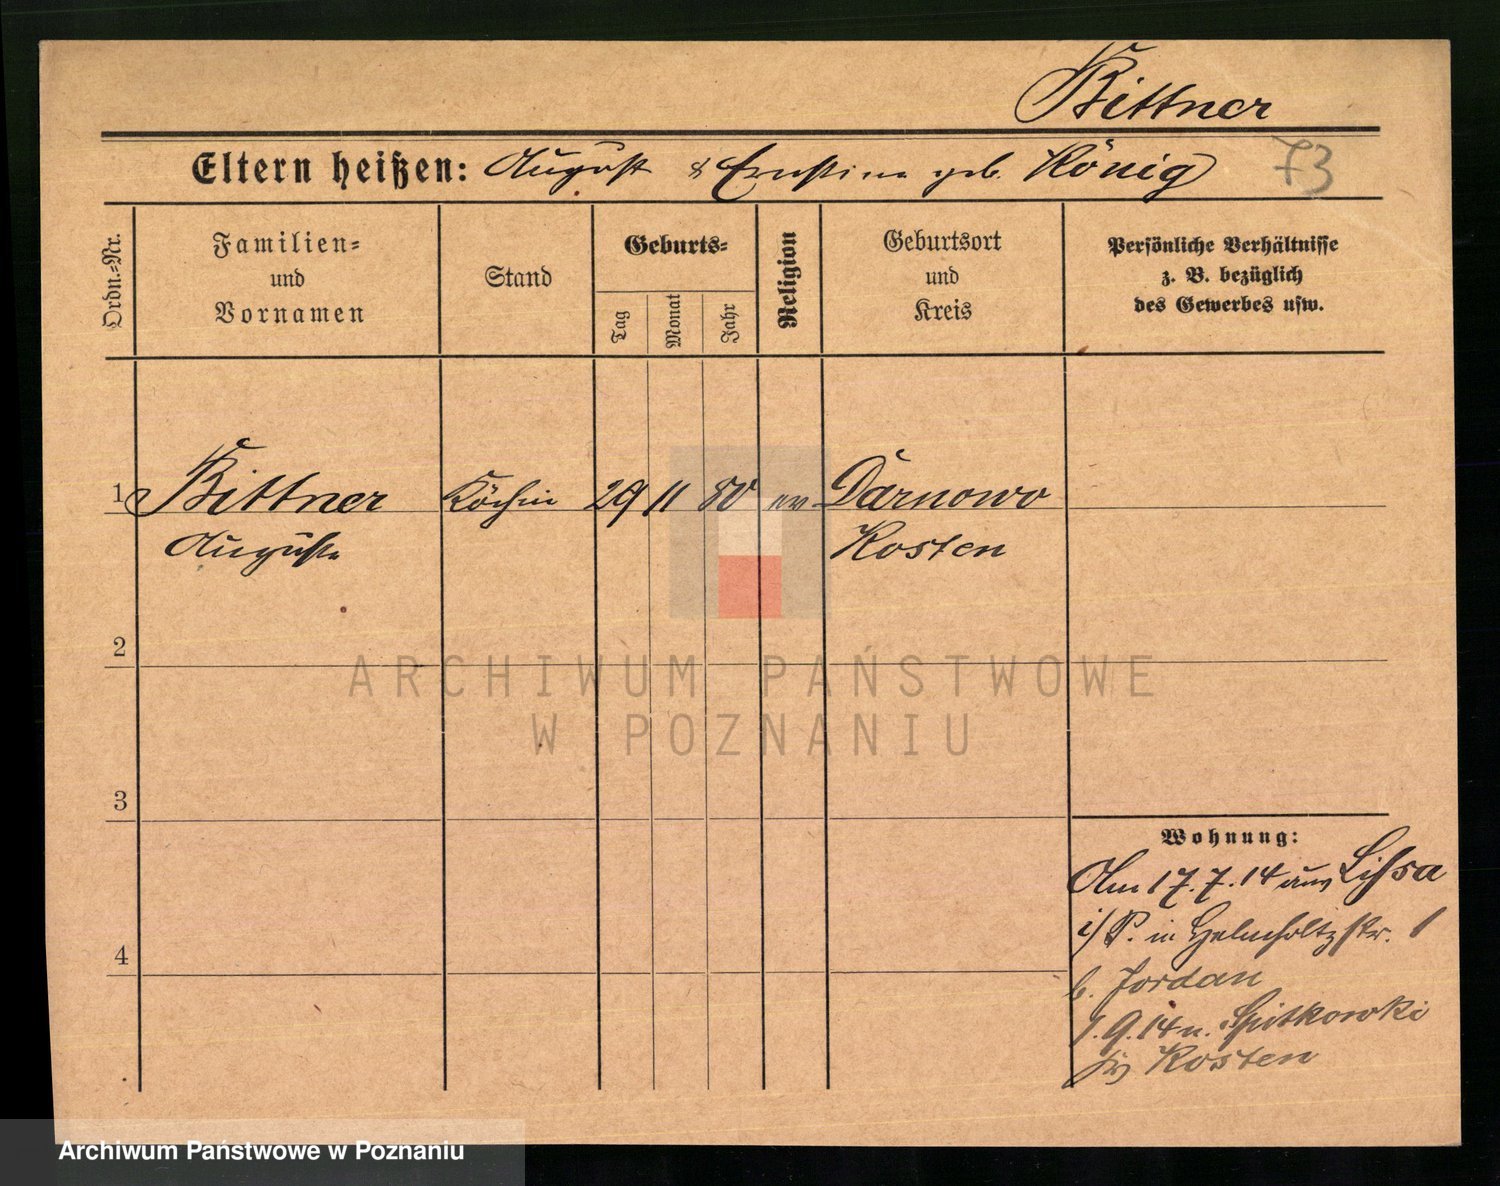 Bittner
Eltern heißen: August & Ernstine geb. König
73
Ordn.-Nr.
Familien-
und
Vornamen
Stand
Geburts-
Tag
Monat
Jahr
Religion
Geburtsort
und
Kreis
Persönliche Verhältnisse
z. B. bezüglich
des Gewerbes usw.
1 Bittner Köchin 29 11 80 ev Darnowo
Auguste Kosten
2
ARCHIWUM PAŃSTWOWE
W POZNANIU
3
Wohnung:
Am 17.7.14 aus Lissa
i/P. in Helmholtzstr. 1
b. Jordan
1.9.14 n. Spitkowki
Kosten
4
Archiwum Państwowe w Poznaniu